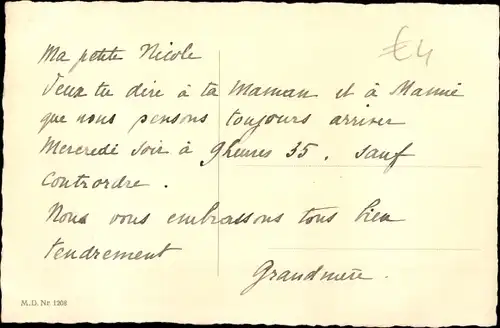 €4
Ma petite Nicole
Veux tu dire à ta Maman et à Mamie
que nous pensons toujours arriver
Mercredi soir à 9 heures 35. sauf
contrordre.
Nous vous embrassons tous bien
tendrement
Grandmère.
M.D. Nr. 1208